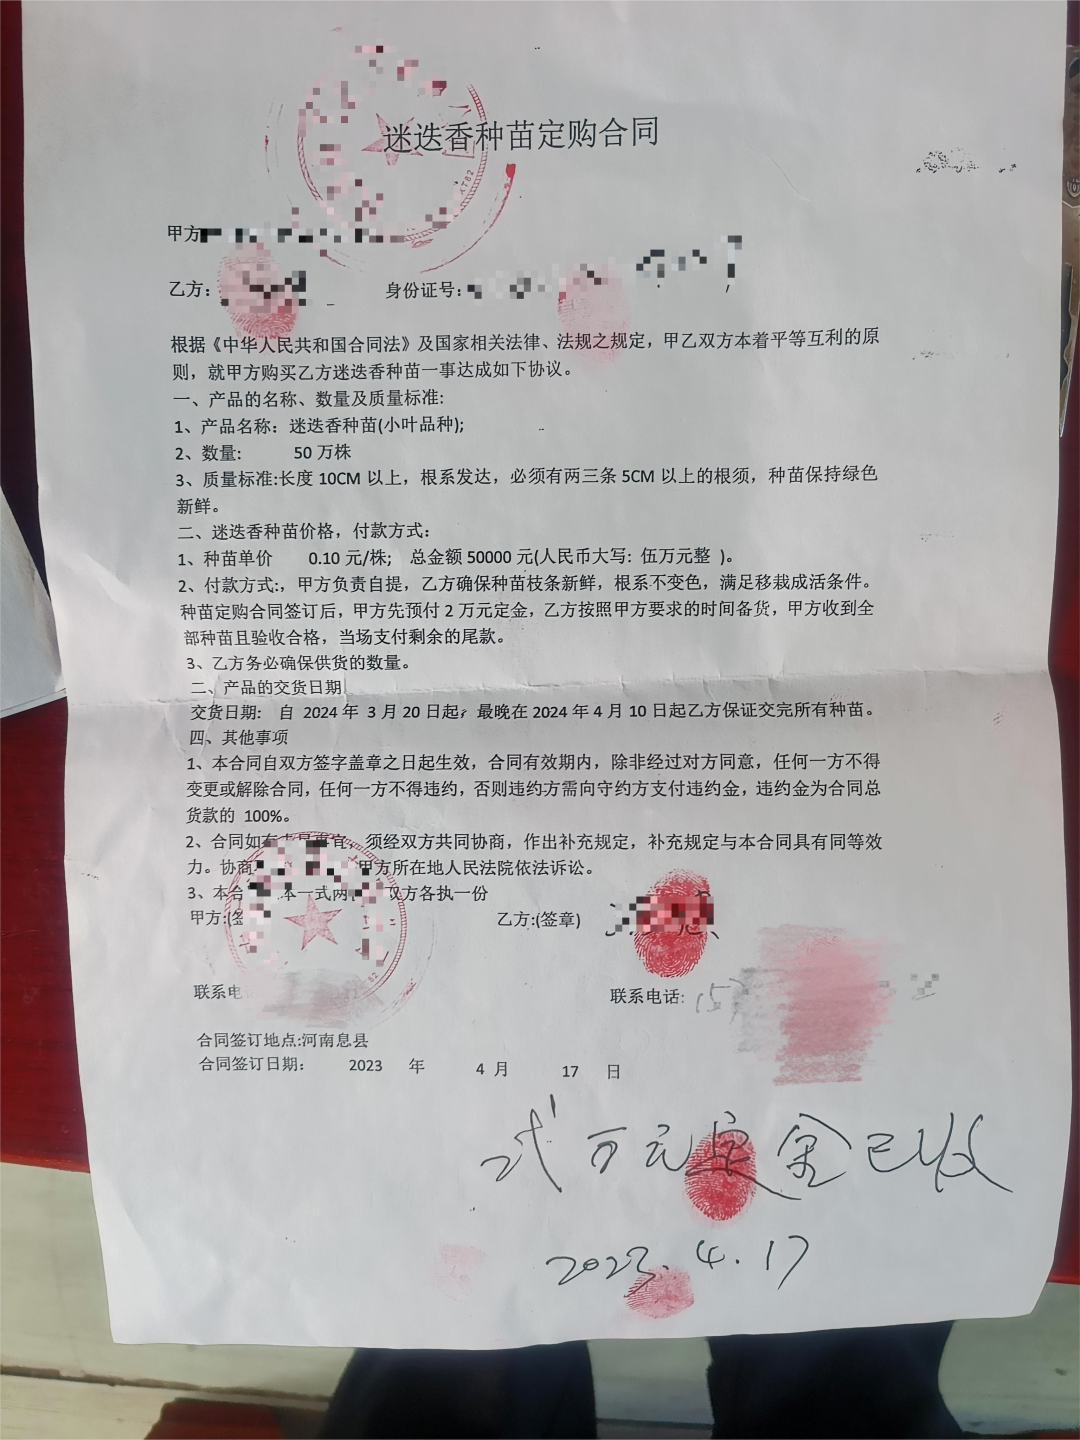 迷迭香种苗定购合同
甲方
乙方： 身份证号：
根据《中华人民共和国合同法》及国家相关法律、法规之规定，甲乙双方本着平等互利的原
则，就甲方购买乙方迷迭香种苗一事达成如下协议。
一、产品的名称、数量及质量标准：
1、产品名称：迷迭香种苗(小叶品种)；
2、数量： 50 万株
3、质量标准:长度 10CM 以上，根系发达，必须有两三条 5CM 以上的根须，种苗保持绿色
新鲜。
二、迷迭香种苗价格，付款方式：
1、种苗单价 0.10 元/株； 总金额 50000 元(人民币大写：伍万元整 )。
2、付款方式:，甲方负责自提，乙方确保种苗枝条新鲜，根系不变色，满足移栽成活条件。
种苗定购合同签订后，甲方先预付 2 万元定金，乙方按照甲方要求的时间备货，甲方收到全
部种苗且验收合格，当场支付剩余的尾款。
3、乙方务必确保供货的数量。
二、产品的交货日期
交货日期： 自 2024 年 3 月 20 日起，最晚在 2024 年 4 月 10 日起乙方保证交完所有种苗。
四、其他事项
1、本合同自双方签字盖章之日起生效，合同有效期内，除非经过对方同意，任何一方不得
变更或解除合同，任何一方不得违约，否则违约方需向守约方支付违约金，违约金为合同总
货款的 100%。
2、合同如有 须经双方共同协商，作出补充规定，补充规定与本合同具有同等效
力。协商 甲方所在地人民法院依法诉讼。
3、本合 本一式两 双方各执一份
甲方:(签 乙方:(签章)
联系电 联系电话: 157
合同签订地点:河南息县
合同签订日期： 2023 年 4 月 17 日
弍万元定金已收
2023.4.17